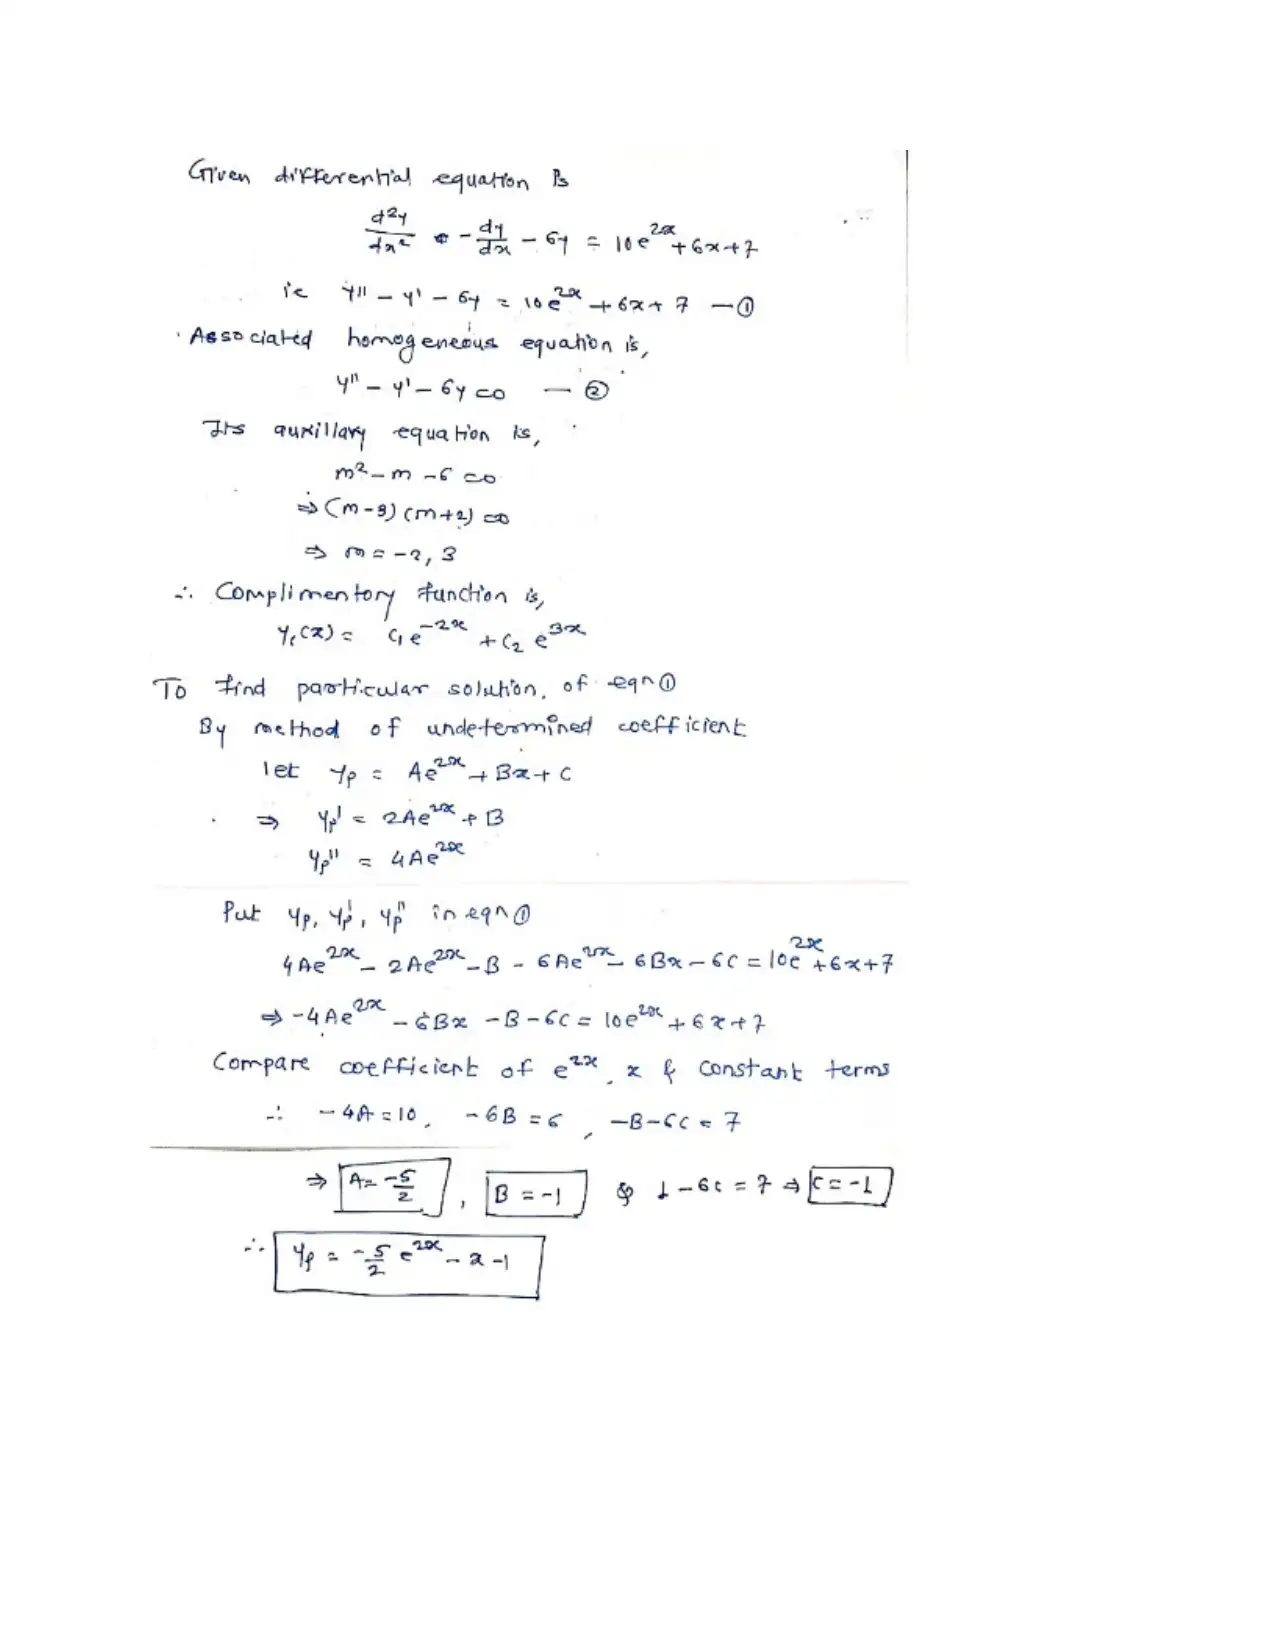 Given differential equation is
d²y/dx² - dy/dx - 6y = 10e^2x + 6x + 7
ie y'' - y' - 6y = 10e^2x + 6x + 7 — ①
Associated homogeneous equation is,
y'' - y' - 6y = 0 — ②
Its auxillary equation is,
m² - m - 6 = 0
⇒ (m-3)(m+2) = 0
⇒ m = -2, 3
∴ Complimentory function is,
yc(x) = c₁e^-2x + c₂e^3x
To find particular solution. of eqn ①
By method of undetermined coefficient
let yp = Ae^2x + Bx + C
⇒ yp' = 2Ae^2x + B
yp'' = 4Ae^2x
Put yp, yp', yp'' in eqn ①
4Ae^2x - 2Ae^2x - B - 6Ae^2x - 6Bx - 6C = 10e^2x + 6x + 7
⇒ -4Ae^2x - 6Bx - B - 6C = 10e^2x + 6x + 7
Compare coefficient of e^2x, x & constant terms
∴ -4A = 10, -6B = 6, -B - 6C = 7
⇒ A = -5/2, B = -1 & 1 - 6c = 7 ⇒ C = -1
∴ yp = -5/2 e^2x - x - 1